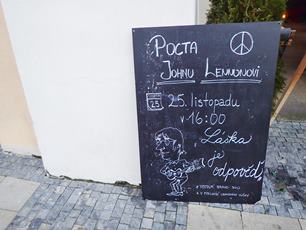 POCTA
JOHNU LENNONOVI
25
25. listopadu
v 16:00
Láska
je
odpověď,